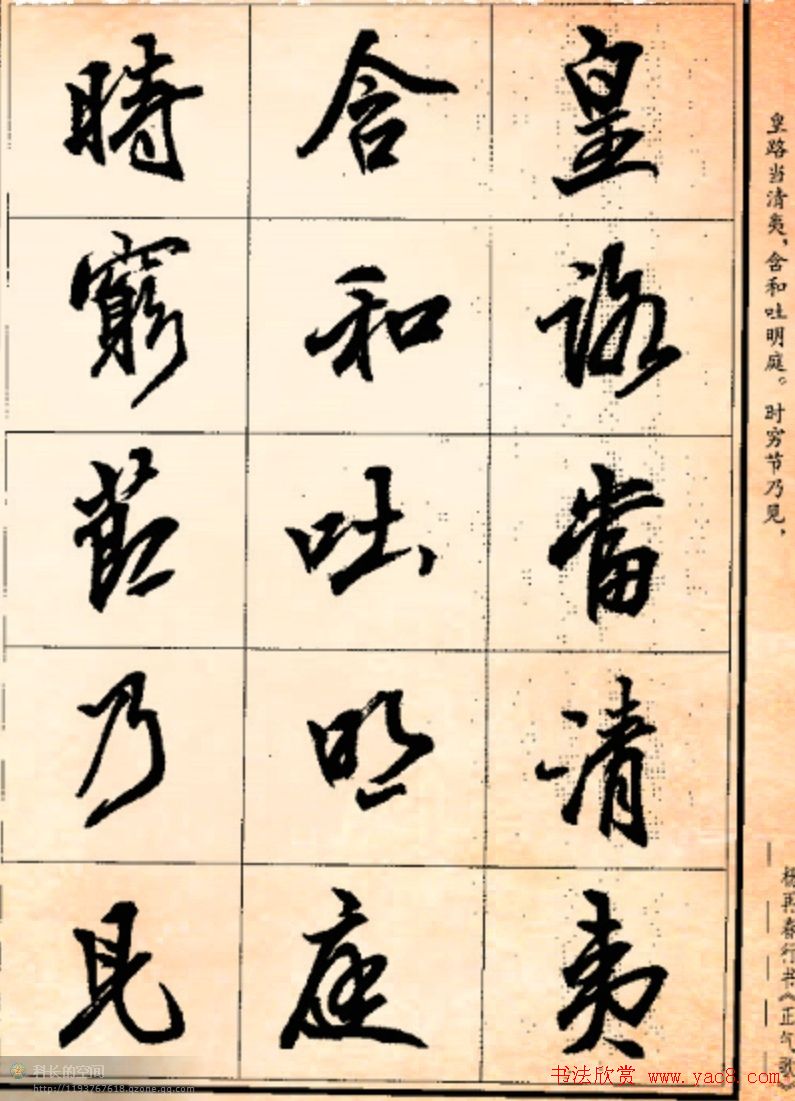 皇路當清夷
含和吐明庭
時窮節乃見
皇路当清夷，含和吐明庭。时穷节乃见，
杨再春行书《正气歌》
科长的空间
http://1193767618.qzone.qq.com
书法欣赏 www.yac8.com